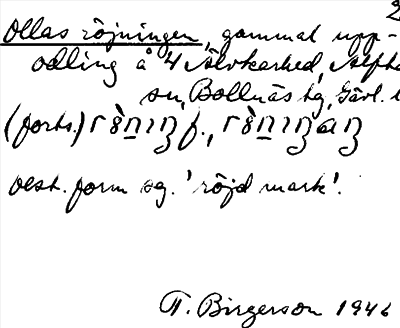 2
Ollas röjningen, gammal upp-
odling å 4 Älvkarhed, Alfta
sn, Bollnäs tg, Gävl. l
(forts.)
best. form sg. 'röjd mark'.
T. Birgerson 1946